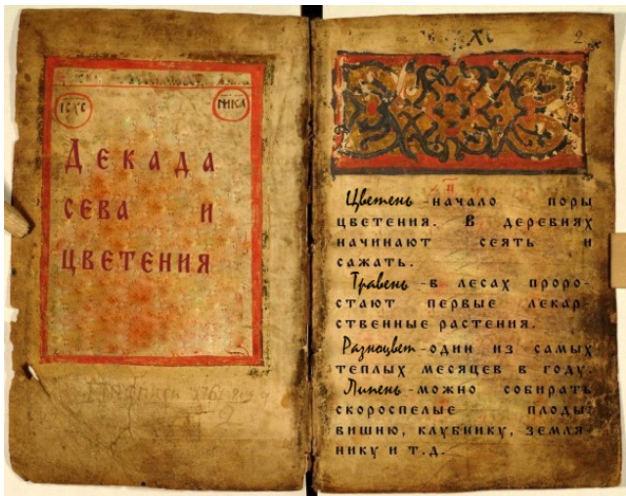 ІС ХС
НИКА
Декада
сева и
цветения
Цветень -начало поры
цветения. В деревнях
начинают сеять и
сажать.
Травень -в лесах проро-
стают первые лекар-
ственные растения.
Разноцвет -один из самых
теплых месяцев в году.
Липень -можно собирать
скороспелые плоды:
вишню, клубнику, земля
нику и т.д.